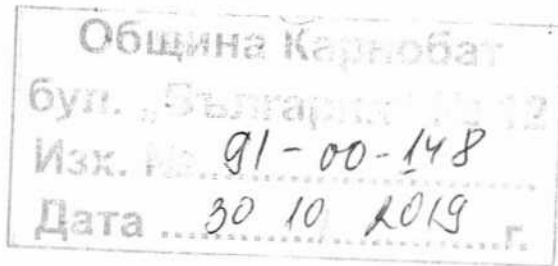 Община Карнобат
бул. „България" № 12
Изх. № 91-00-148
Дата 30 10 2019 г.